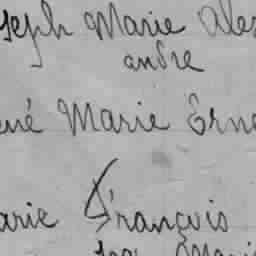 seph Marie Alex
andre
ené Marie Erne
arie François